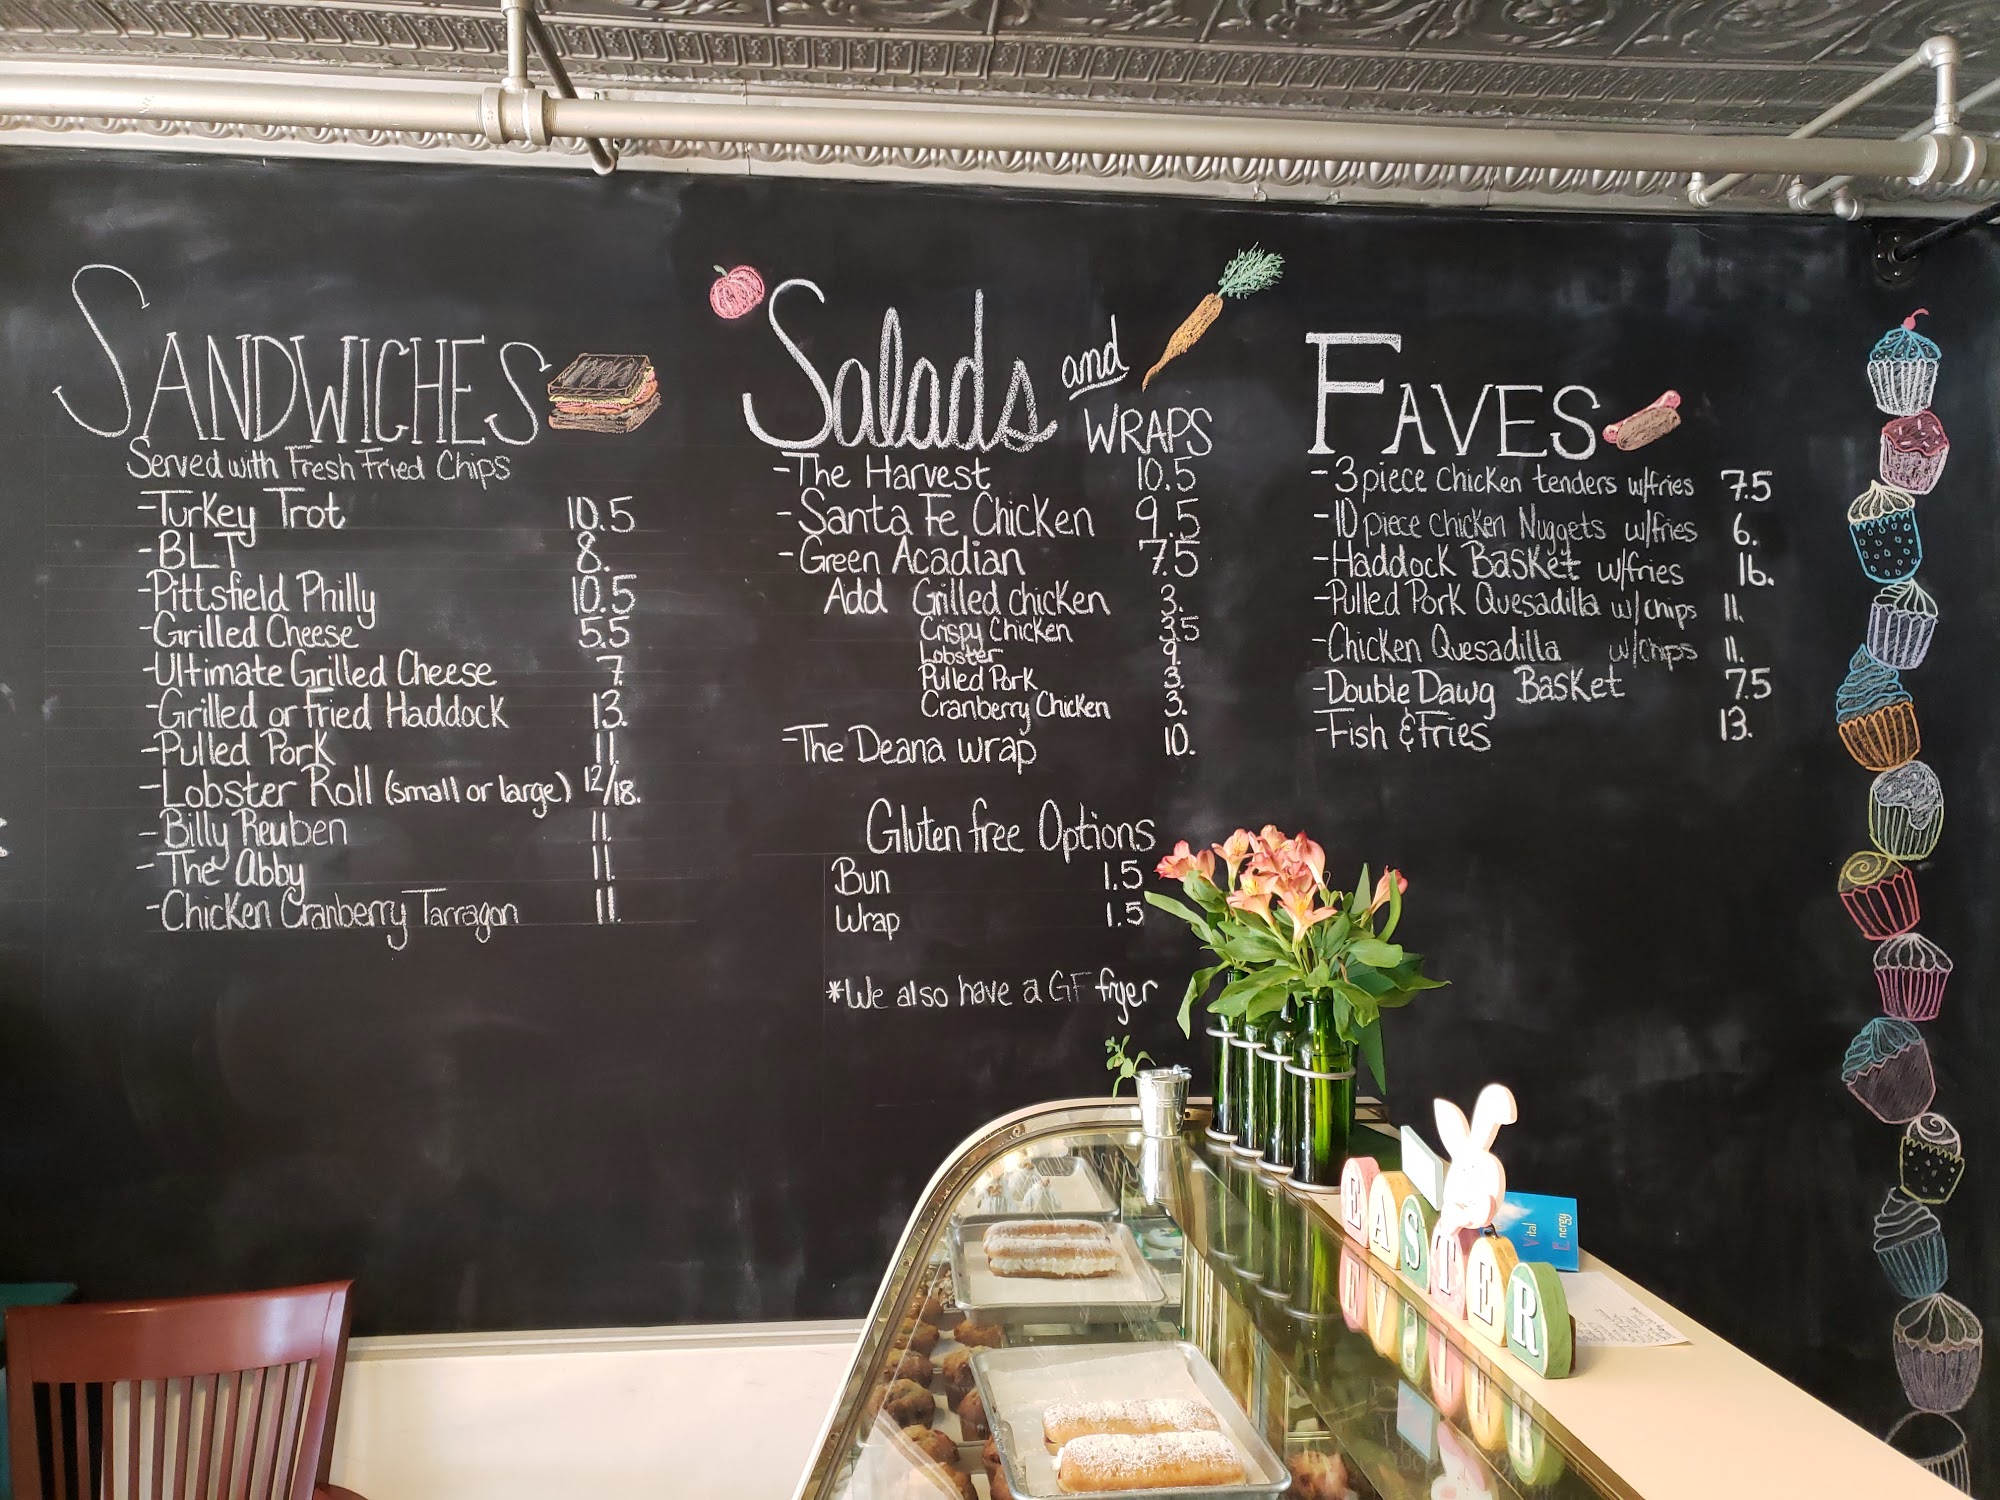 SANDWICHES
Served with Fresh Fried Chips
-Turkey Trot 10.5
-BLT 8.
-Pittsfield Philly 10.5
-Grilled Cheese 5.5
-Ultimate Grilled Cheese 7.
-Grilled or Fried Haddock 13.
-Pulled Pork 11.
-Lobster Roll (small or large) 12/18.
-Billy Reuben 11.
-The Abby 11.
-Chicken Cranberry Tarragon 11.
Salads and
WRAPS
-The Harvest 10.5
-Santa Fe Chicken 9.5
-Green Acadian 7.5
Add Grilled chicken 3.
Crispy Chicken 3.5
Lobster 9.
Pulled Pork 3.
Cranberry Chicken 3.
-The Deana wrap 10.
Gluten free Options
Bun 1.5
Wrap 1.5
*We also have a GF fryer
FAVES
-3 piece Chicken tenders w/fries 7.5
-10 piece chicken Nuggets w/fries 6.
-Haddock Basket w/fries 16.
-Pulled Pork Quesadilla w/chips 11.
-Chicken Quesadilla w/chips 11.
-Double Dawg Basket 7.5
-Fish & Fries 13.
EASTER
Vital
Energy